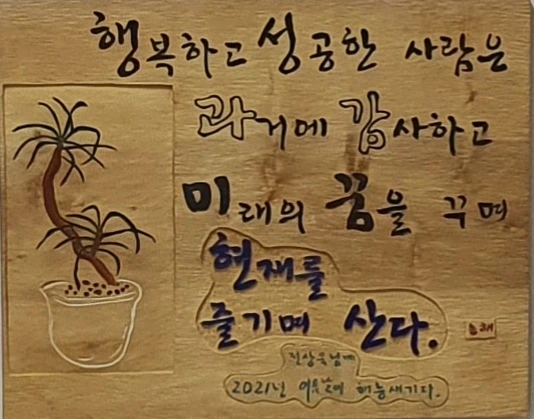 행복하고 성공한 사람은
과거에 감사하고
미래의 꿈을 꾸며
현재를
즐기며 산다.
2021년 새기다.